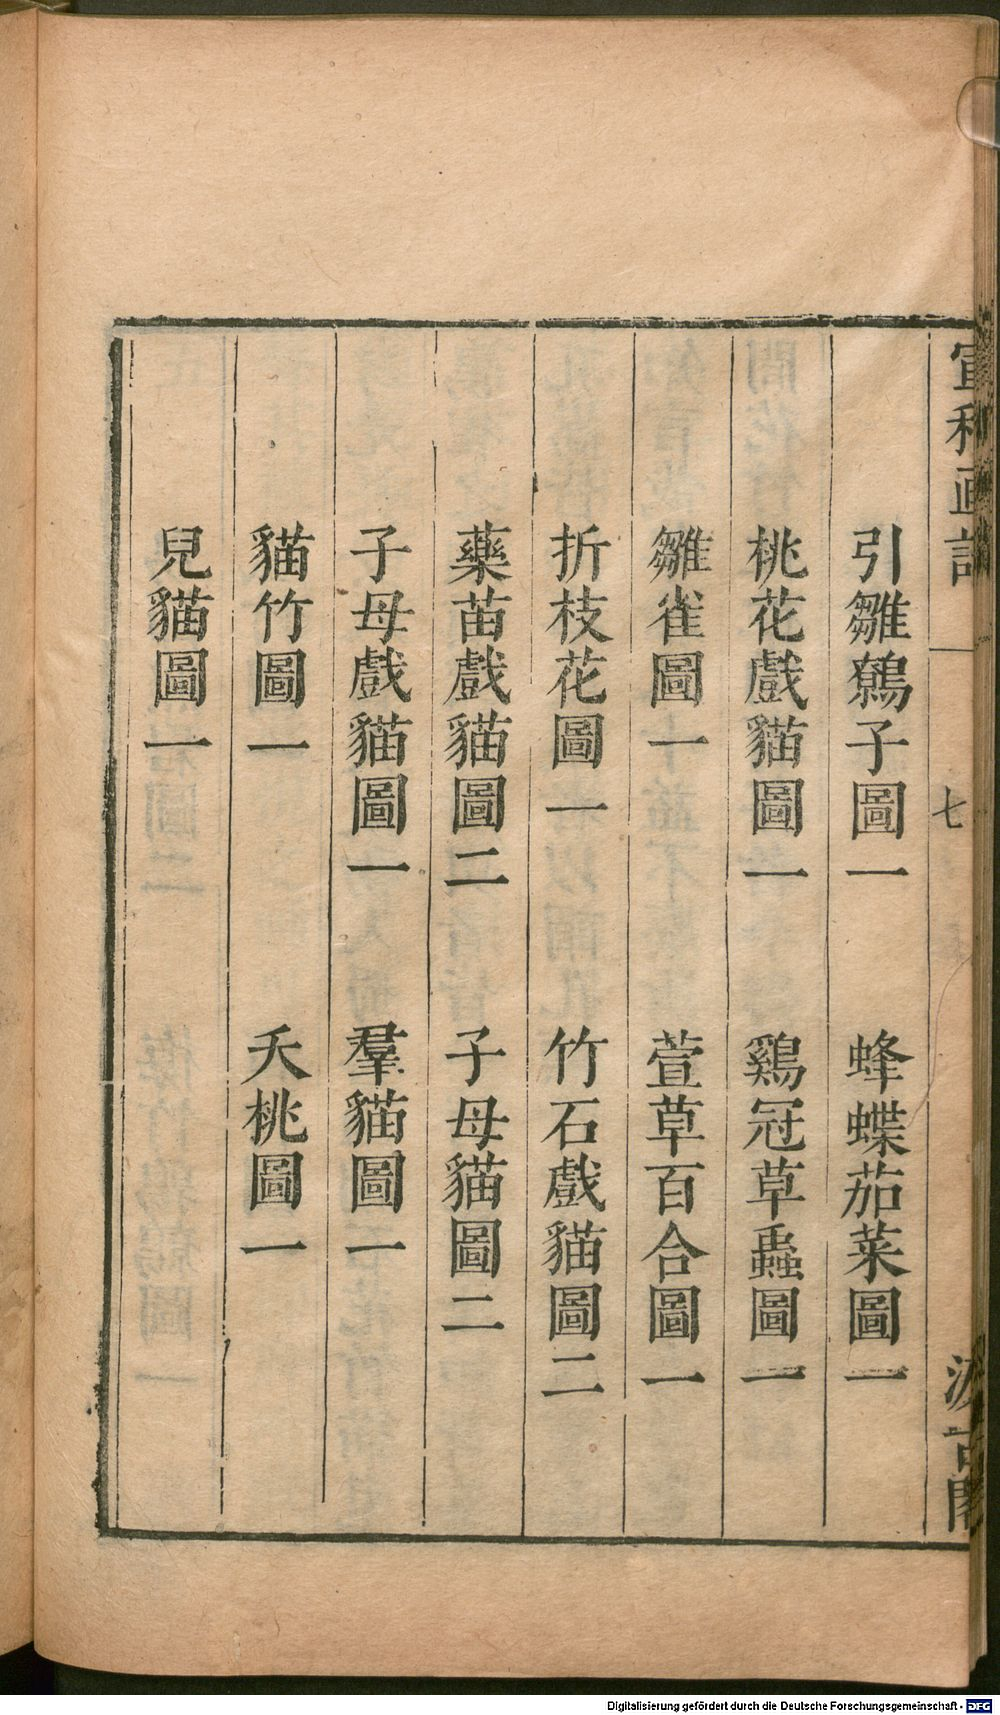 宣和画譜
七
汲古閣
引雛鶉子圖一
蜂蝶茄菜圖一
桃花戲貓圖一
鷄冠草蟲圖一
雛雀圖一
萱草百合圖一
折枝花圖一
竹石戲貓圖二
藥苗戲貓圖二
子母貓圖二
子母戲貓圖一
羣貓圖一
貓竹圖一
夭桃圖一
兒貓圖一
Digitalisierung gefördert durch die Deutsche Forschungsgemeinschaft - DFG